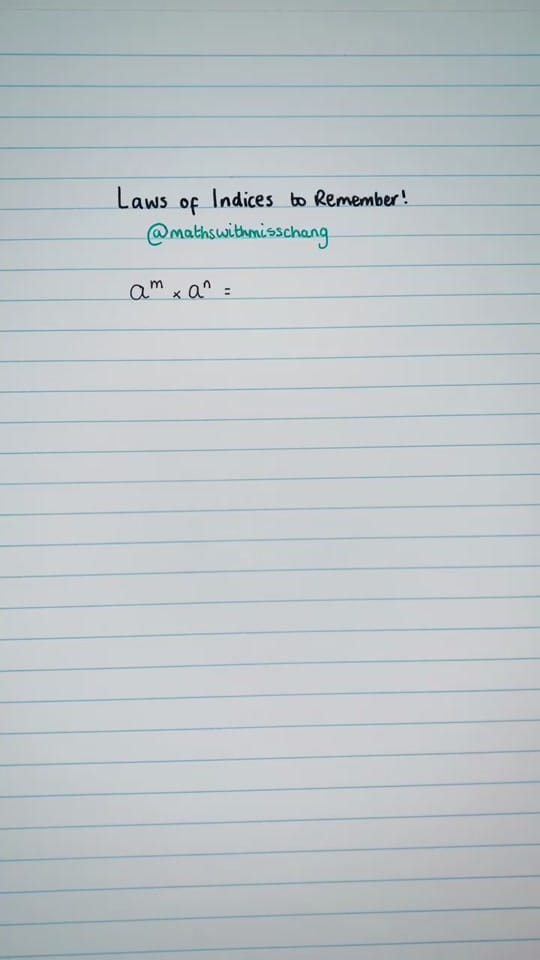 Laws of Indices to Remember!
@mathswithmisschang
aᵐ × aⁿ =